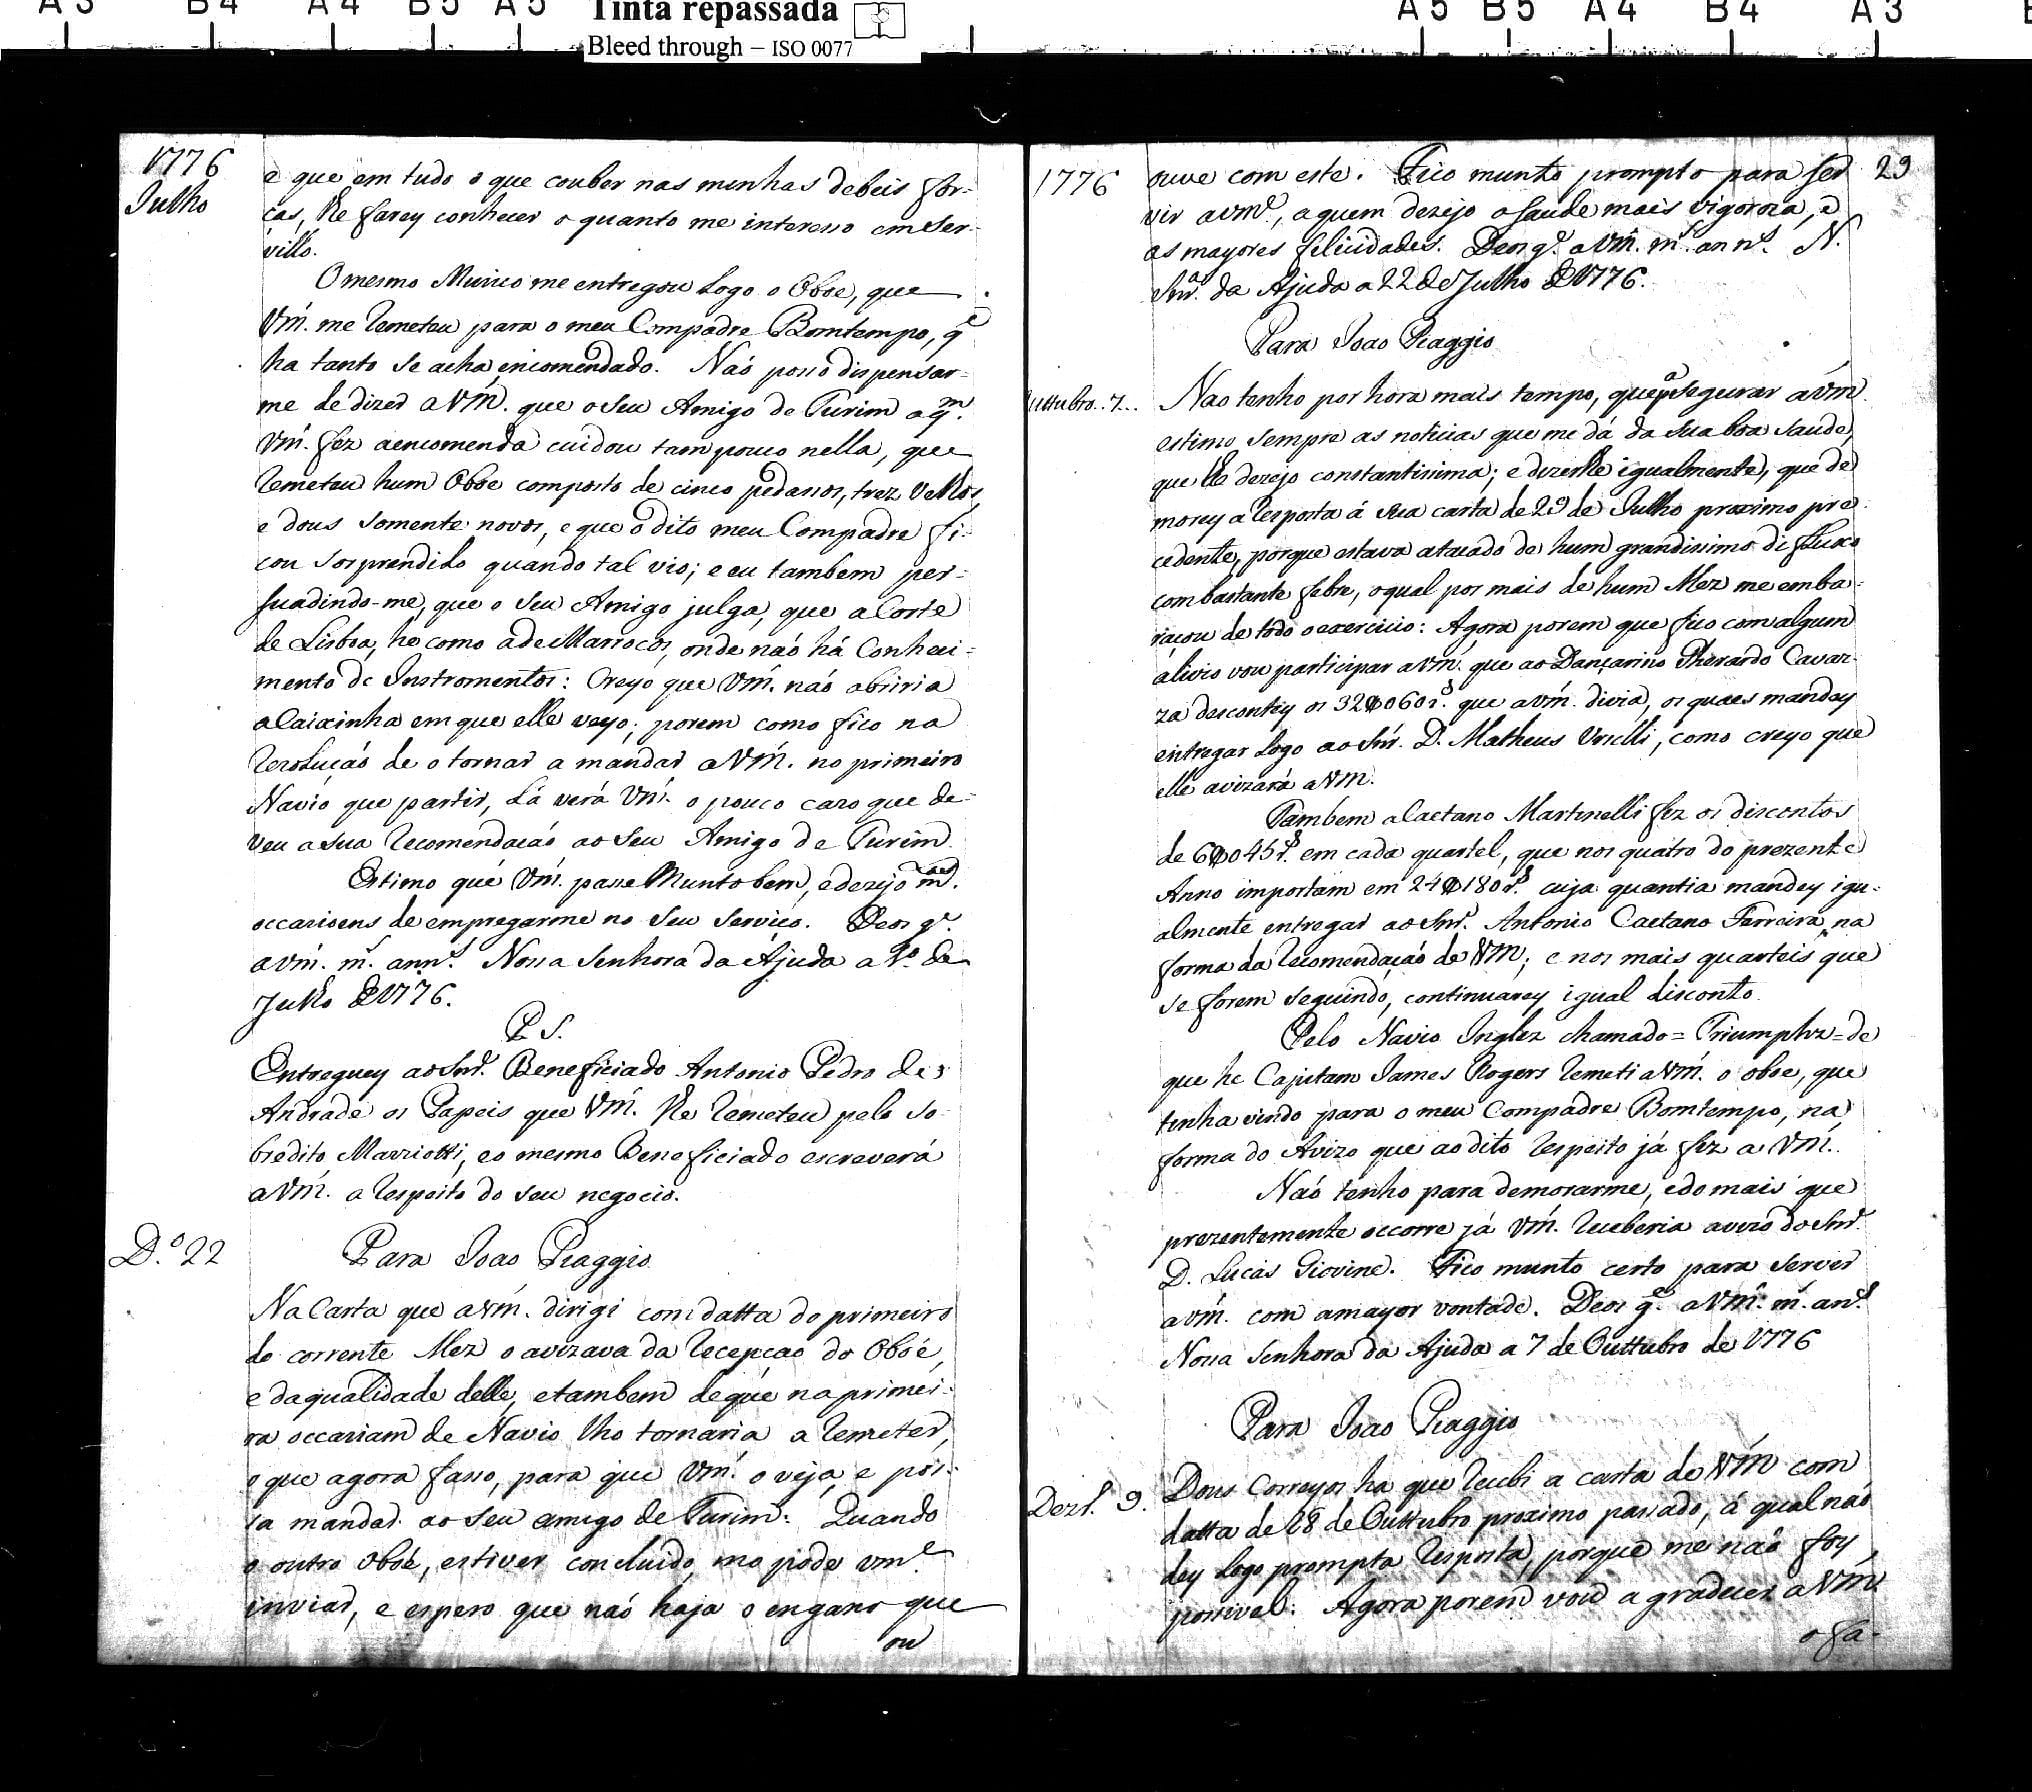 A3 B4 A4 B5 A5 Tinta repassada A5 B5 A4 B4 A3
Bleed through – ISO 0077
1776
Julho
e que em tudo o que couber nas minhas debeis for-
ças, lhe farey conhecer o quanto me interesso em ser-
villo.
O mesmo Musico me entregou logo o Oboe, que
Vm̃. me remeteu para o meu Compadre Bomtempo, q̃
ha tanto se acha encomendado. Naõ posso dispensar-
me de dizer a Vm̃. que o seu Amigo de Turim a qm.
Vm̃. fez a encomenda cuidou tam pouco nella, que
remeteu hum Oboe composto de cinco pedassos, trez velhos,
e dous somente novos, e que o dito meu Compadre fi-
cou sorprendido quando tal vio; e eu tambem per-
suadindo-me, que o seu Amigo julga, que a Corte
de Lisboa, he como a de Marrocos, onde naõ há Conheci-
mento de Instromentos: Creyo que Vm̃. naõ abriria
a Caixinha em que elle veyo; porem como fico na
rezoluçaõ de o tornar a mandar a Vm̃. no primeiro
Navio que partir, lá verá Vm̃. o pouco cazo que de-
veu a sua recomendaçaõ ao seu Amigo de Turim.
Estimo que Vm̃. passe Munto bem, e dezejo m.tas
occasioens de empregarme no seu serviço. Deos g.e
a vm̃. m.s ann.s Nossa Senhora da Ajuda a 1.º de
Julho de 1776.
P. S.
Entreguey ao Snr. Beneficiado Antonio Pedro de
Andrade os Papeis que Vm̃. lhe remeteu pelo so-
bredito Marriotti, e o mesmo Beneficiado escreverá
a Vm̃. a respeito do seu negocio.
D.º 22
Para Joao Piaggio
Na Carta que a vm̃. dirigi com datta do primeiro
do corrente Mez o avizava da recepçao do Oboé,
e da qualidade delle, e tambem de que na primei-
ra occasiam de Navio lho tornaria a remeter,
o que agora fasso, para que Vm̃. o veja, e pos-
sa mandar ao seu amigo de Turim: Quando
o outro Oboé, estiver concluido mo pode vm.e
inviar, e espero que naõ haja o engano que
ou
1776
29
ouve com este. Fico munto prompto para ser
vir a vm.e, a quem dezejo a saude mais vigoroza, e
as mayores felicidades. Deos g.e a Vm̃. m.s ann.s N.
Snr.a da Ajuda a 22 de Julho de 1776.
Para Joao Piaggio
Outtubro..7...
Nao tenho por hora mais tempo, que p.a segurar a vm̃.
estimo sempre as noticias que me dá da sua boa saude,
que lhe dezejo constantissima; e dizerlhe igualmente, que de
morey a resposta á sua carta de 29 de Julho proximo pre-
cedente, porque estava atacado de hum grandissimo difluxo
com bastante febre, o qual por mais de hum Mez me emba-
raçou de todo o exercicio: Agora porem que fico com algum
alivio vou participar a vm̃. que ao Dançarino Gherardo Cavaz-
za descontey os 32$060 r.s que a vm̃. divia, os quaes mandey
entregar logo ao Snr. D. Matheus Urselli, como creyo que
elle avizará a Vm̃.
Tambem a Caetano Martinelli fez os discontos
de 6$045 r.s em cada quartel, que nos quatro do prezente
Anno importam em 24$180 r.s cuja quantia mandey igu-
almente entregar ao Snr. Antonio Caetano Ferreira, na
forma da recomendaçaõ de Vm̃; e nos mais quarteis que
se forem seguindo, continuarey igual disconto.
Pelo Navio Inglez chamado = Triumphz = de
que he Capitam James Rogers remeti a Vm̃. o oboe, que
tinha vindo para o meu Compadre Bomtempo, na
forma do Avizo que ao dito respeito já fiz a Vm̃.
Naõ tenho para demorarme, e do mais que
prezentemente occorre já Vm̃. receberia avizo do Snr.
D. Lucas Giovine. Fico munto certo para server
a vm̃. com a mayor vontade. Deos g.e a Vm̃. m.s an.s
Nossa Senhora da Ajuda a 7 de Outtubro de 1776
Para Joao Piaggio
Dezr.º 9.
Dous Correyos ha que recebi a carta de Vm̃ com
datta de 28 de Outtubro proximo passado, á qual naõ
dey logo prompta resposta, porque me naõ foy
possivel: Agora porem vou a gradecer a Vm̃
o fa-